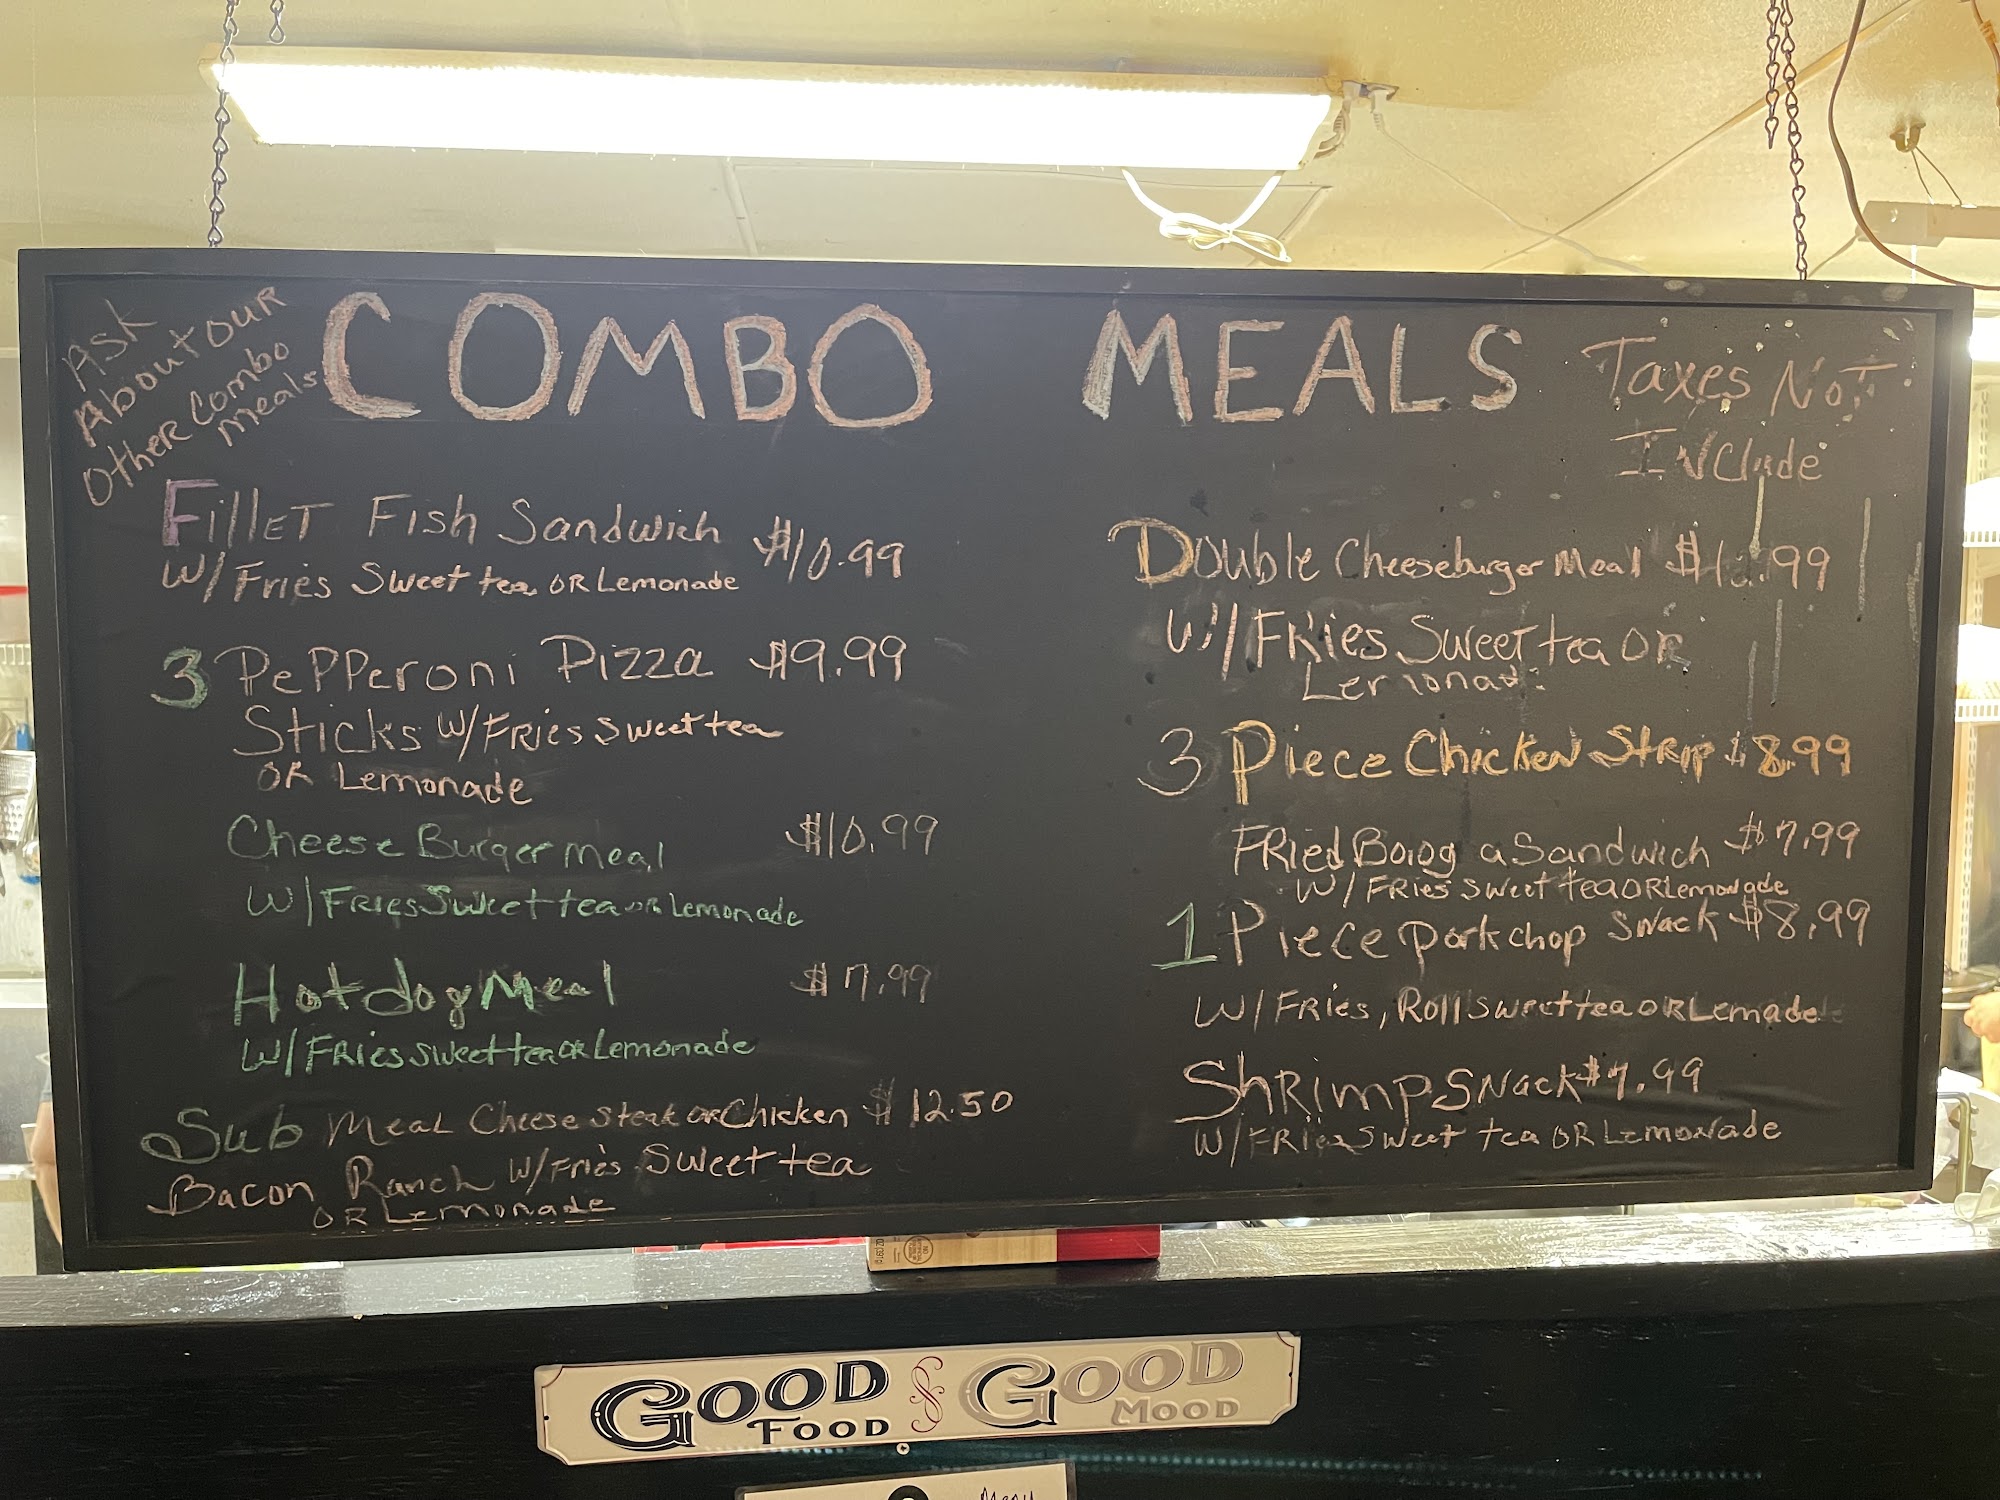 Ask
About our
Other Combo
meals
COMBO MEALS
Taxes Not
Include
Fillet Fish Sandwich $10.99
W/Fries Sweet tea OR Lemonade
3 Pepperoni Pizza $9.99
Sticks W/Fries Sweet tea
OR Lemonade
Cheese Burger meal $10.99
W/Fries Sweet tea OR Lemonade
Hot dog Meal $7.99
W/Fries sweet tea OR Lemonade
Sub Meal Cheese steak OR Chicken $12.50
Bacon Ranch W/Fries Sweet tea
OR Lemonade
Double Cheeseburger Meal
W/Fries Sweet tea OR
3 Piece Chicken Strip $8.99
FRied Bolog a Sandwich $7.99
W/Fries sweet tea OR Lemonade
1 Piece porkchop Snack $8.99
W/Fries, Roll sweet tea OR Lemade
Shrimp Snack $7.99
W/Fries Sweet tea OR Lemonade
GOOD FOOD & GOOD MOOD